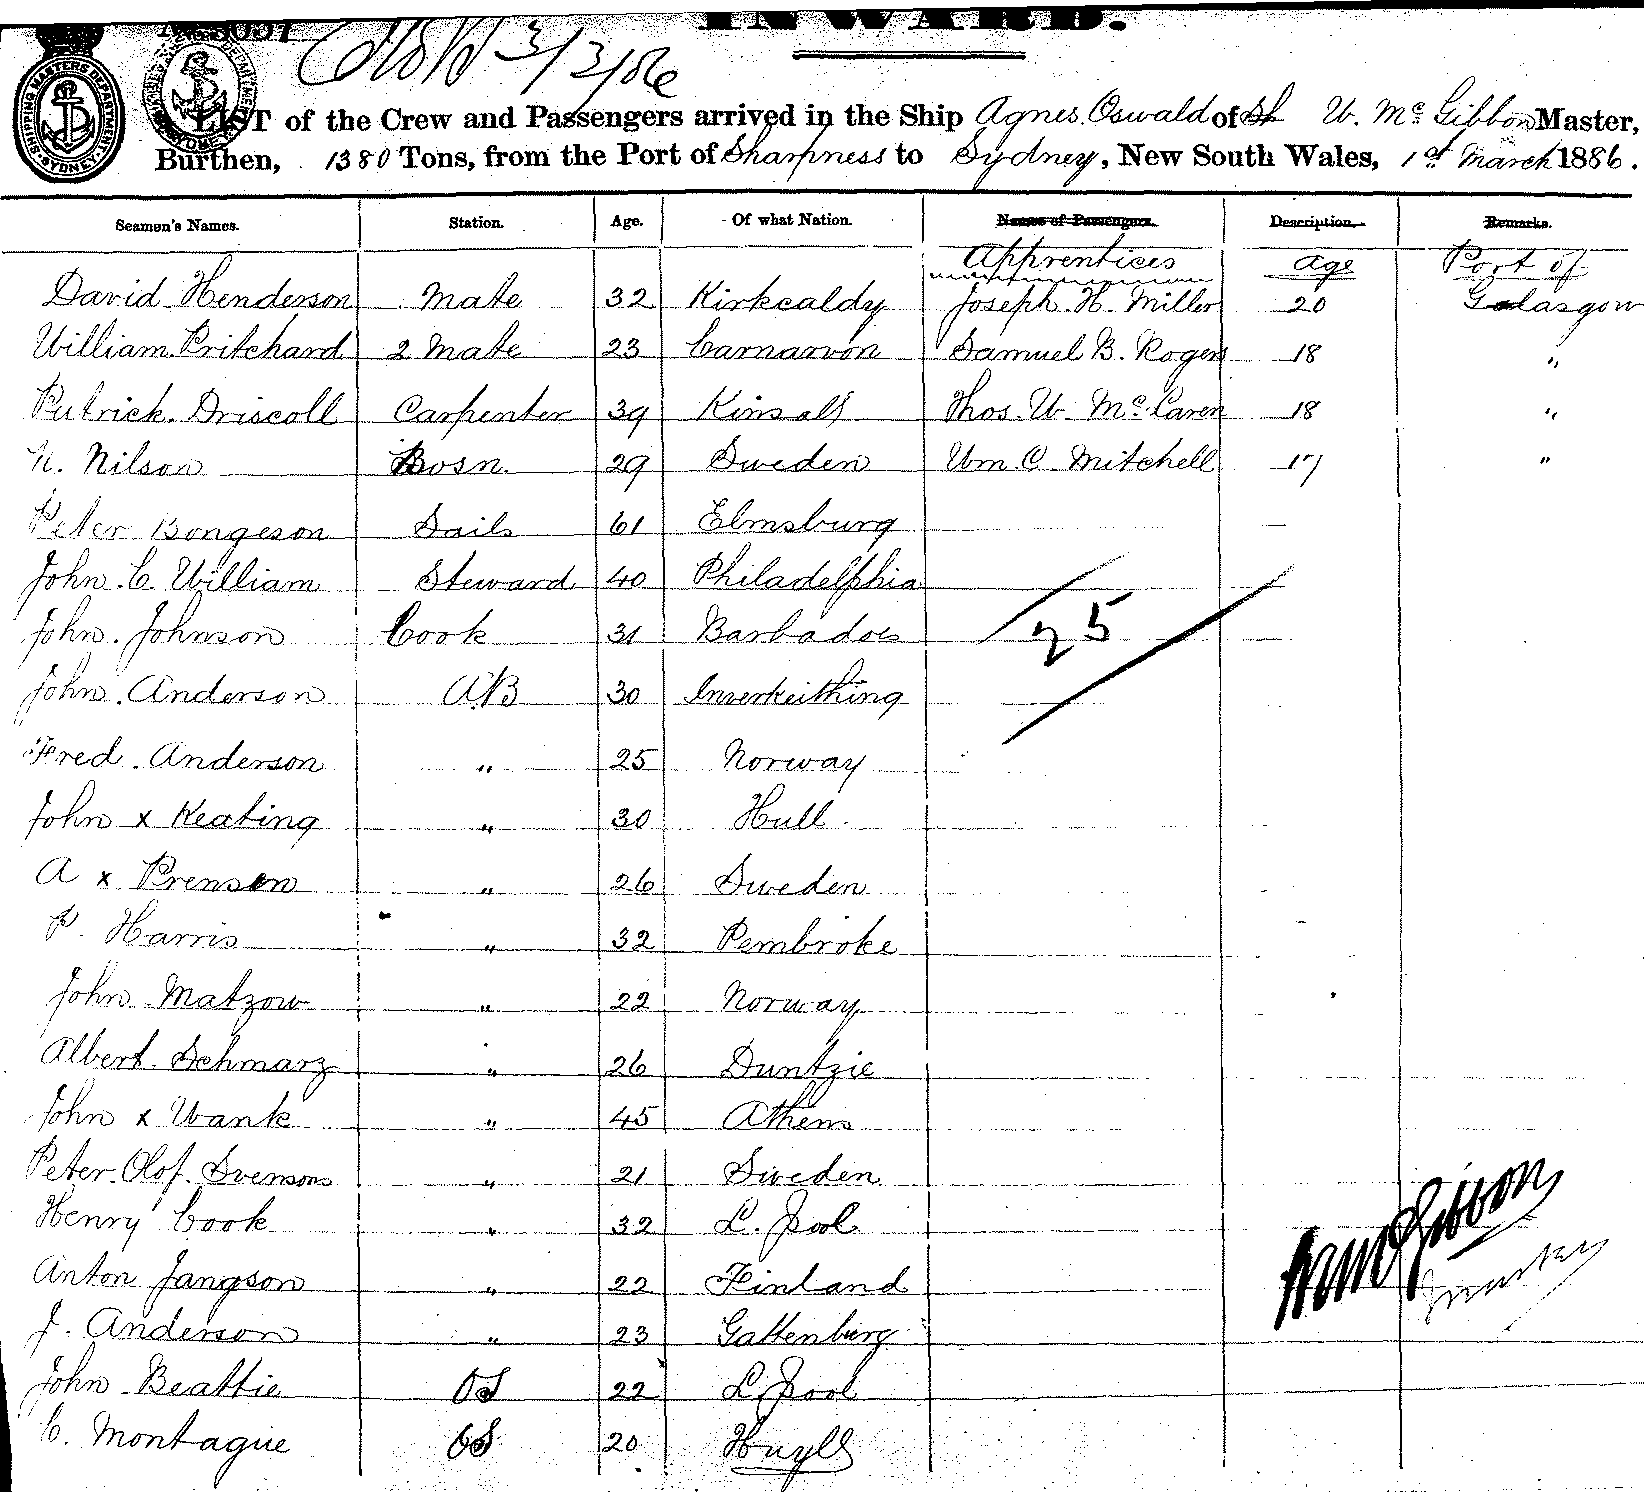 INWARD.
3/3/86
SHIPPING MASTERS DEPARTMENT SYDNEY
LIST of the Crew and Passengers arrived in the Ship Agnes Oswald of W. McGibbon Master,
Burthen, 1380 Tons, from the Port of Sharpness to Sydney, New South Wales, 1st March 1886.
Seamen's Names. Station. Age. Of what Nation. Names of Passengers. Description. Remarks.
Apprentices Age Port of
David Henderson Mate 32 Kirkcaldy Joseph H. Miller 20 Glasgow
William Pritchard 2 Mate 23 Carnarvon Samuel B. Rogers 18 "
Patrick Driscoll Carpenter 39 Kinsall Thos. W. McLaren 18 "
N. Nilson Bosn. 29 Sweden Wm C Mitchell 17 "
Peter Bongeson Sails 61 Elmsburg
John C. William Steward 40 Philadelphia
John Johnson Cook 31 Barbadoes
25
John Anderson AB 30 Inverkeithing
Fred Anderson " 25 Norway
John x Keating " 30 Hull
A x Prenson " 26 Sweden
P. Harris " 32 Pembroke
John Matzow " 22 Norway
Albert Schmarz " 26 Duntzic
John x Wank " 45 Athens
Peter Olof Svensons " 21 Sweden
Henry Cook " 32 L. Pool
Anton Jangson " 22 Finland
J. Anderson " 23 Gattenburg
John Beattie OS 22 L. Pool
C. Montague OS 20
McGibbon
Master